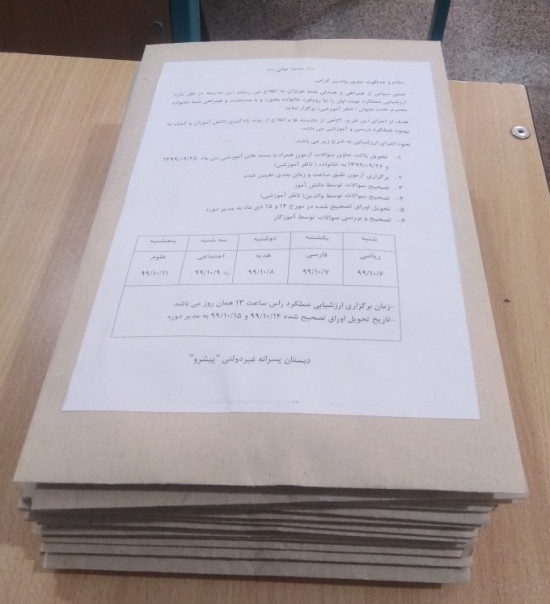 بسمه تعالی
سلام و صداقت حضور والدین گرامی
ضمن سپاس از همراهی و همدلی شما عزیزان به اطلاع می رساند این مدرسه در نظر دارد
ارزشیابی عملکرد نوبت اول را (با رویکرد خانواده محور) و با مساعدت و همراهی شما خانواده
محترم تحت عنوان ( ناظر آموزشی) برگزار نماید.
هدف از اجرای این طرح، آگاهی از دانسته ها و اطلاع از روند یادگیری دانش آموزان و کمک به
بهبود عملکرد درسی و آموزشی می باشد.
نحوه اجرای ارزشیابی به شرح زیر می باشد.
۱- تحویل پاکت حاوی سوالات آزمون همراه با بسته های آموزشی دی ماه ۱۳۹۹/۰۹/۲۵
و ۱۳۹۹/۰۹/۲۶ به خانواده ( ناظر آموزشی)
۲- برگزاری آزمون طبق ساعت و زمان بندی تعیین شده
۳- تصحیح سوالات توسط دانش آموز
۴- تصحیح سوالات توسط والدین( ناظر آموزشی)
۵- تحویل اوراق تصحیح شده در مورخ ۱۴ و ۱۵ دی ماه به مدیر دوره
۶- تصحیح و بررسی سوالات توسط آموزگار
شنبه یکشنبه دوشنبه سه شنبه پنجشنبه
ریاضی فارسی هدیه اجتماعی علوم
۹۹/۱۰/۶ ۹۹/۱۰/۷ ۹۹/۱۰/۸ ۹۹/۱۰/۹ ۹۹/۱۰/۱۱
-زمان برگزاری ارزشیابی عملکرد راس ساعت ۱۳ همان روز می باشد.
-تاریخ تحویل اوراق تصحیح شده ۹۹/۱۰/۱۴ و ۹۹/۱۰/۱۵ به مدیر دوره
دبستان پسرانه غیردولتی "پیشرو"